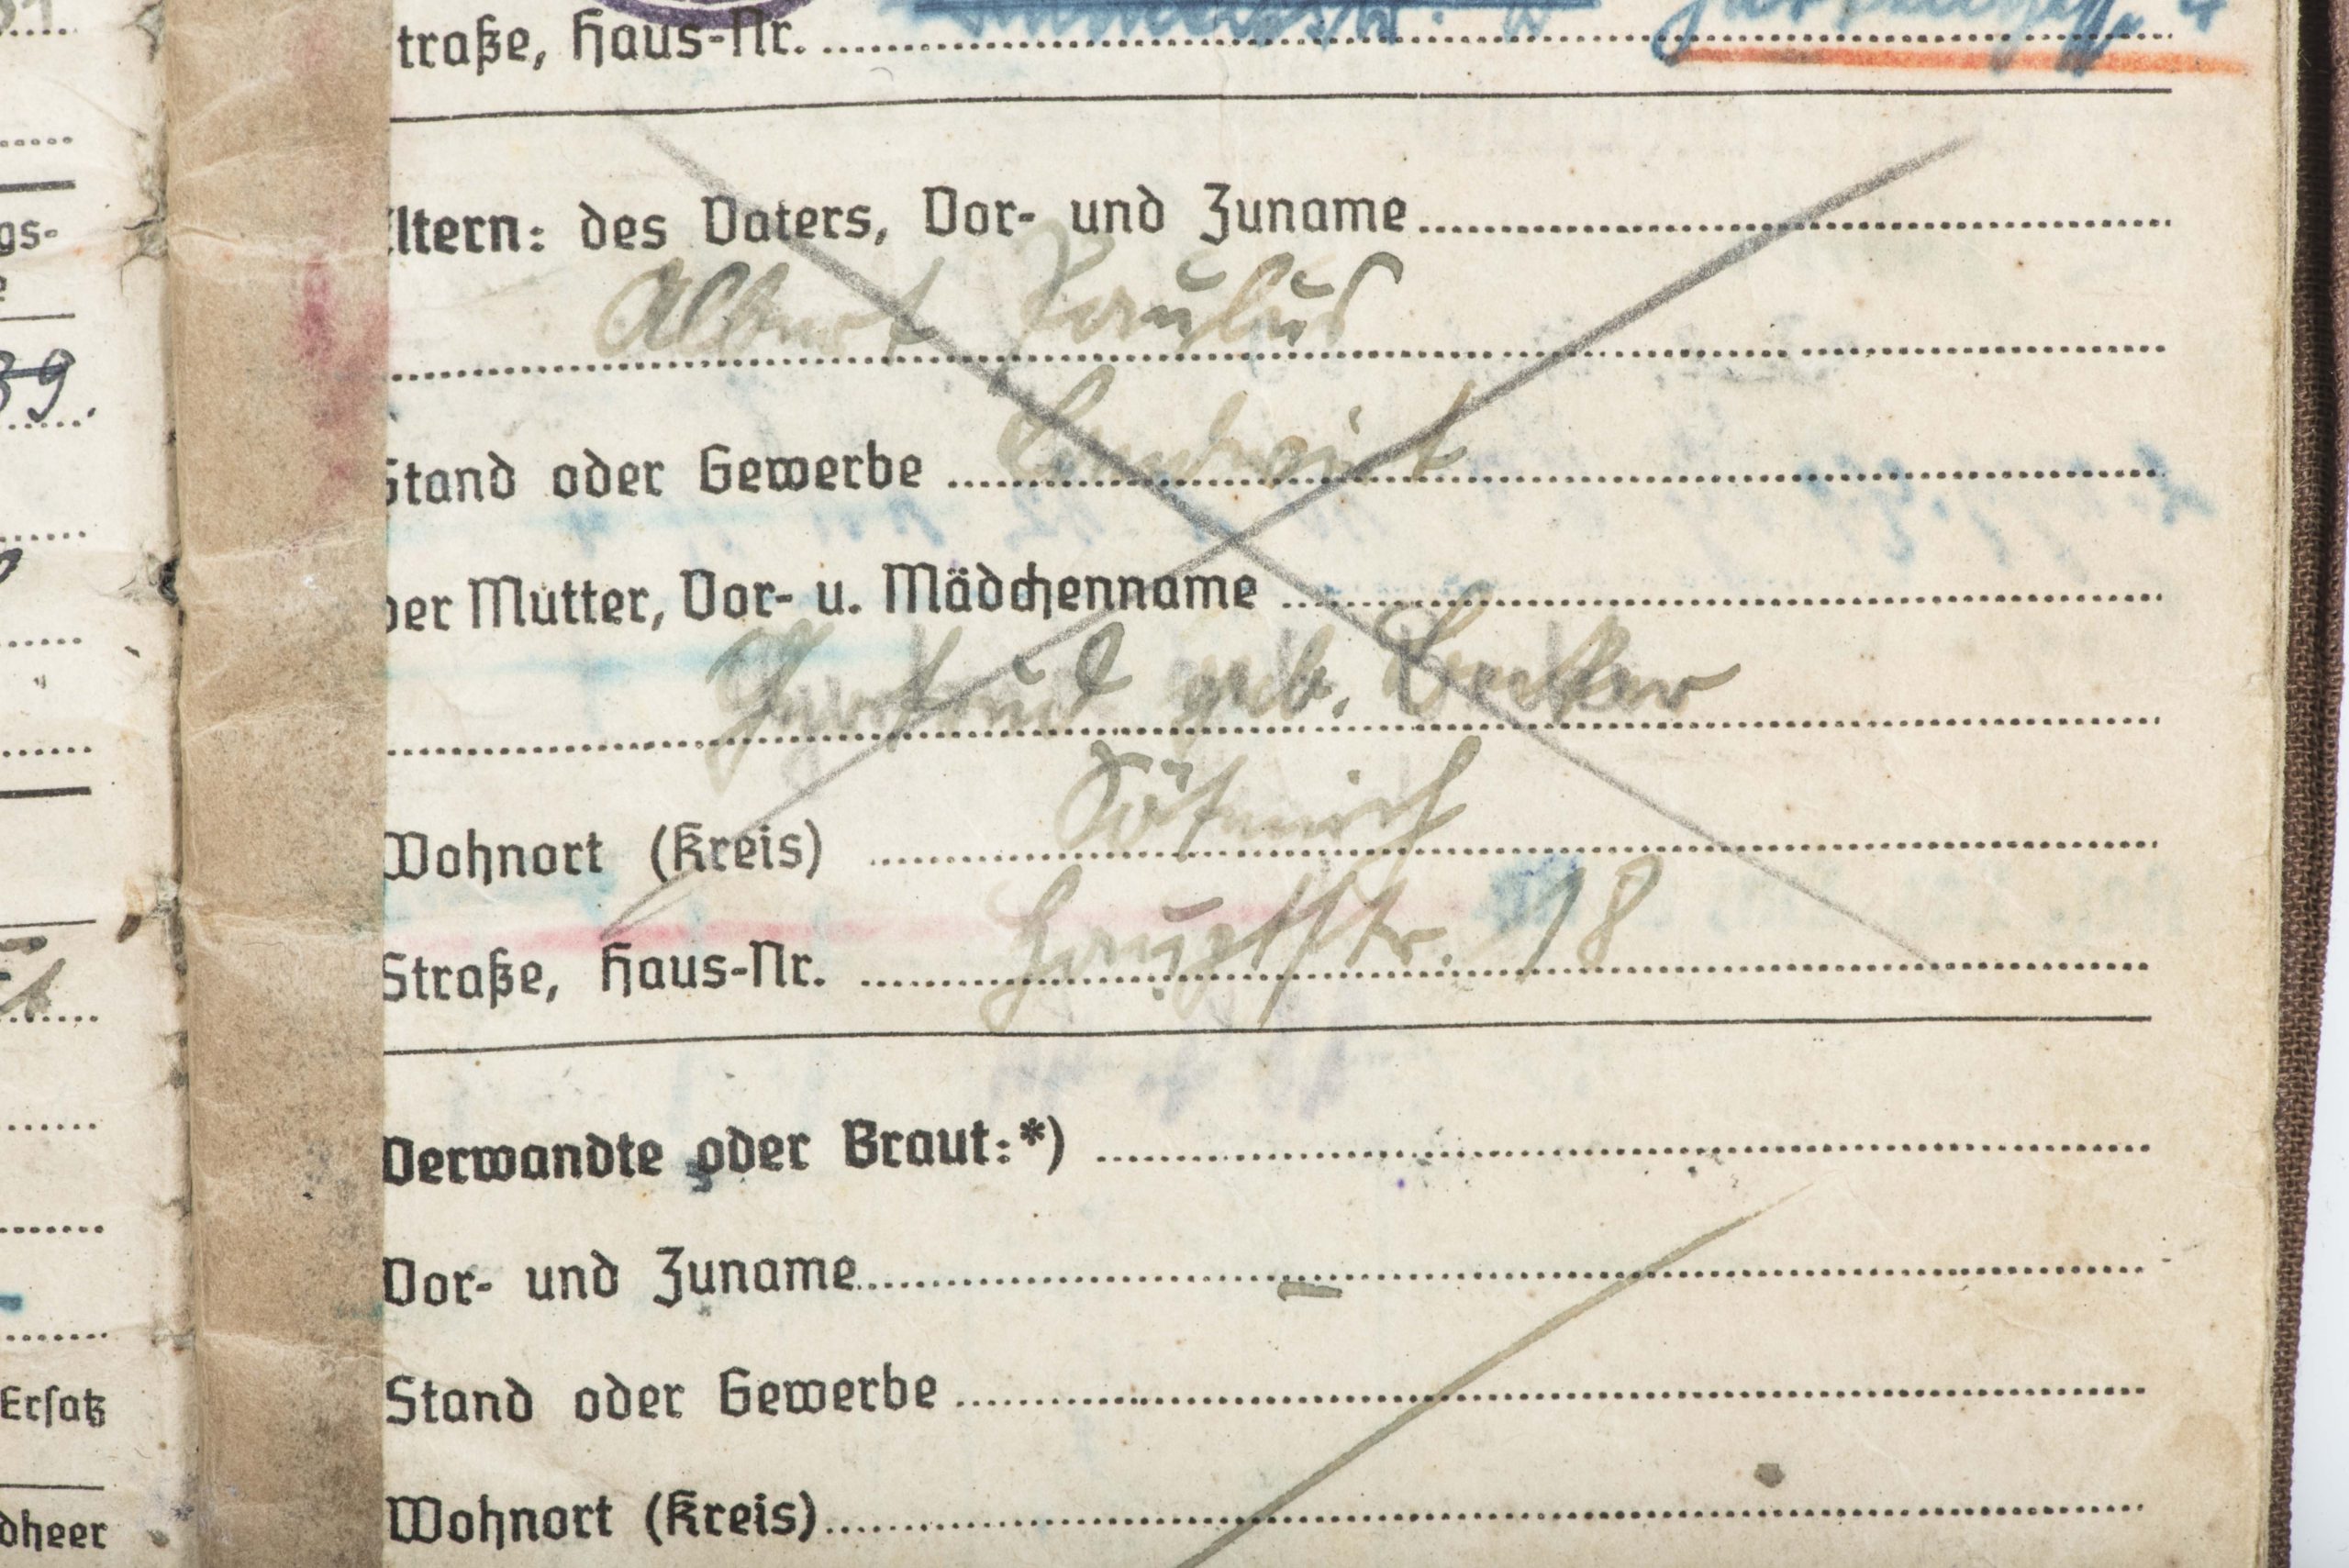 traße, Haus-Nr.
ltern: des Vaters, Vor- und Zuname
Albert Paulus
Stand oder Gewerbe Landwirt
der Mutter, Vor- u. Mädchenname
Gertrud geb. Becker
Wohnort (Kreis) Sötenich
Straße, Haus-Nr. Hauptstr. 18
Verwandte oder Braut:*)
Vor- und Zuname
Stand oder Gewerbe
Wohnort (Kreis)
gs-
39.
Ersatz
dheer